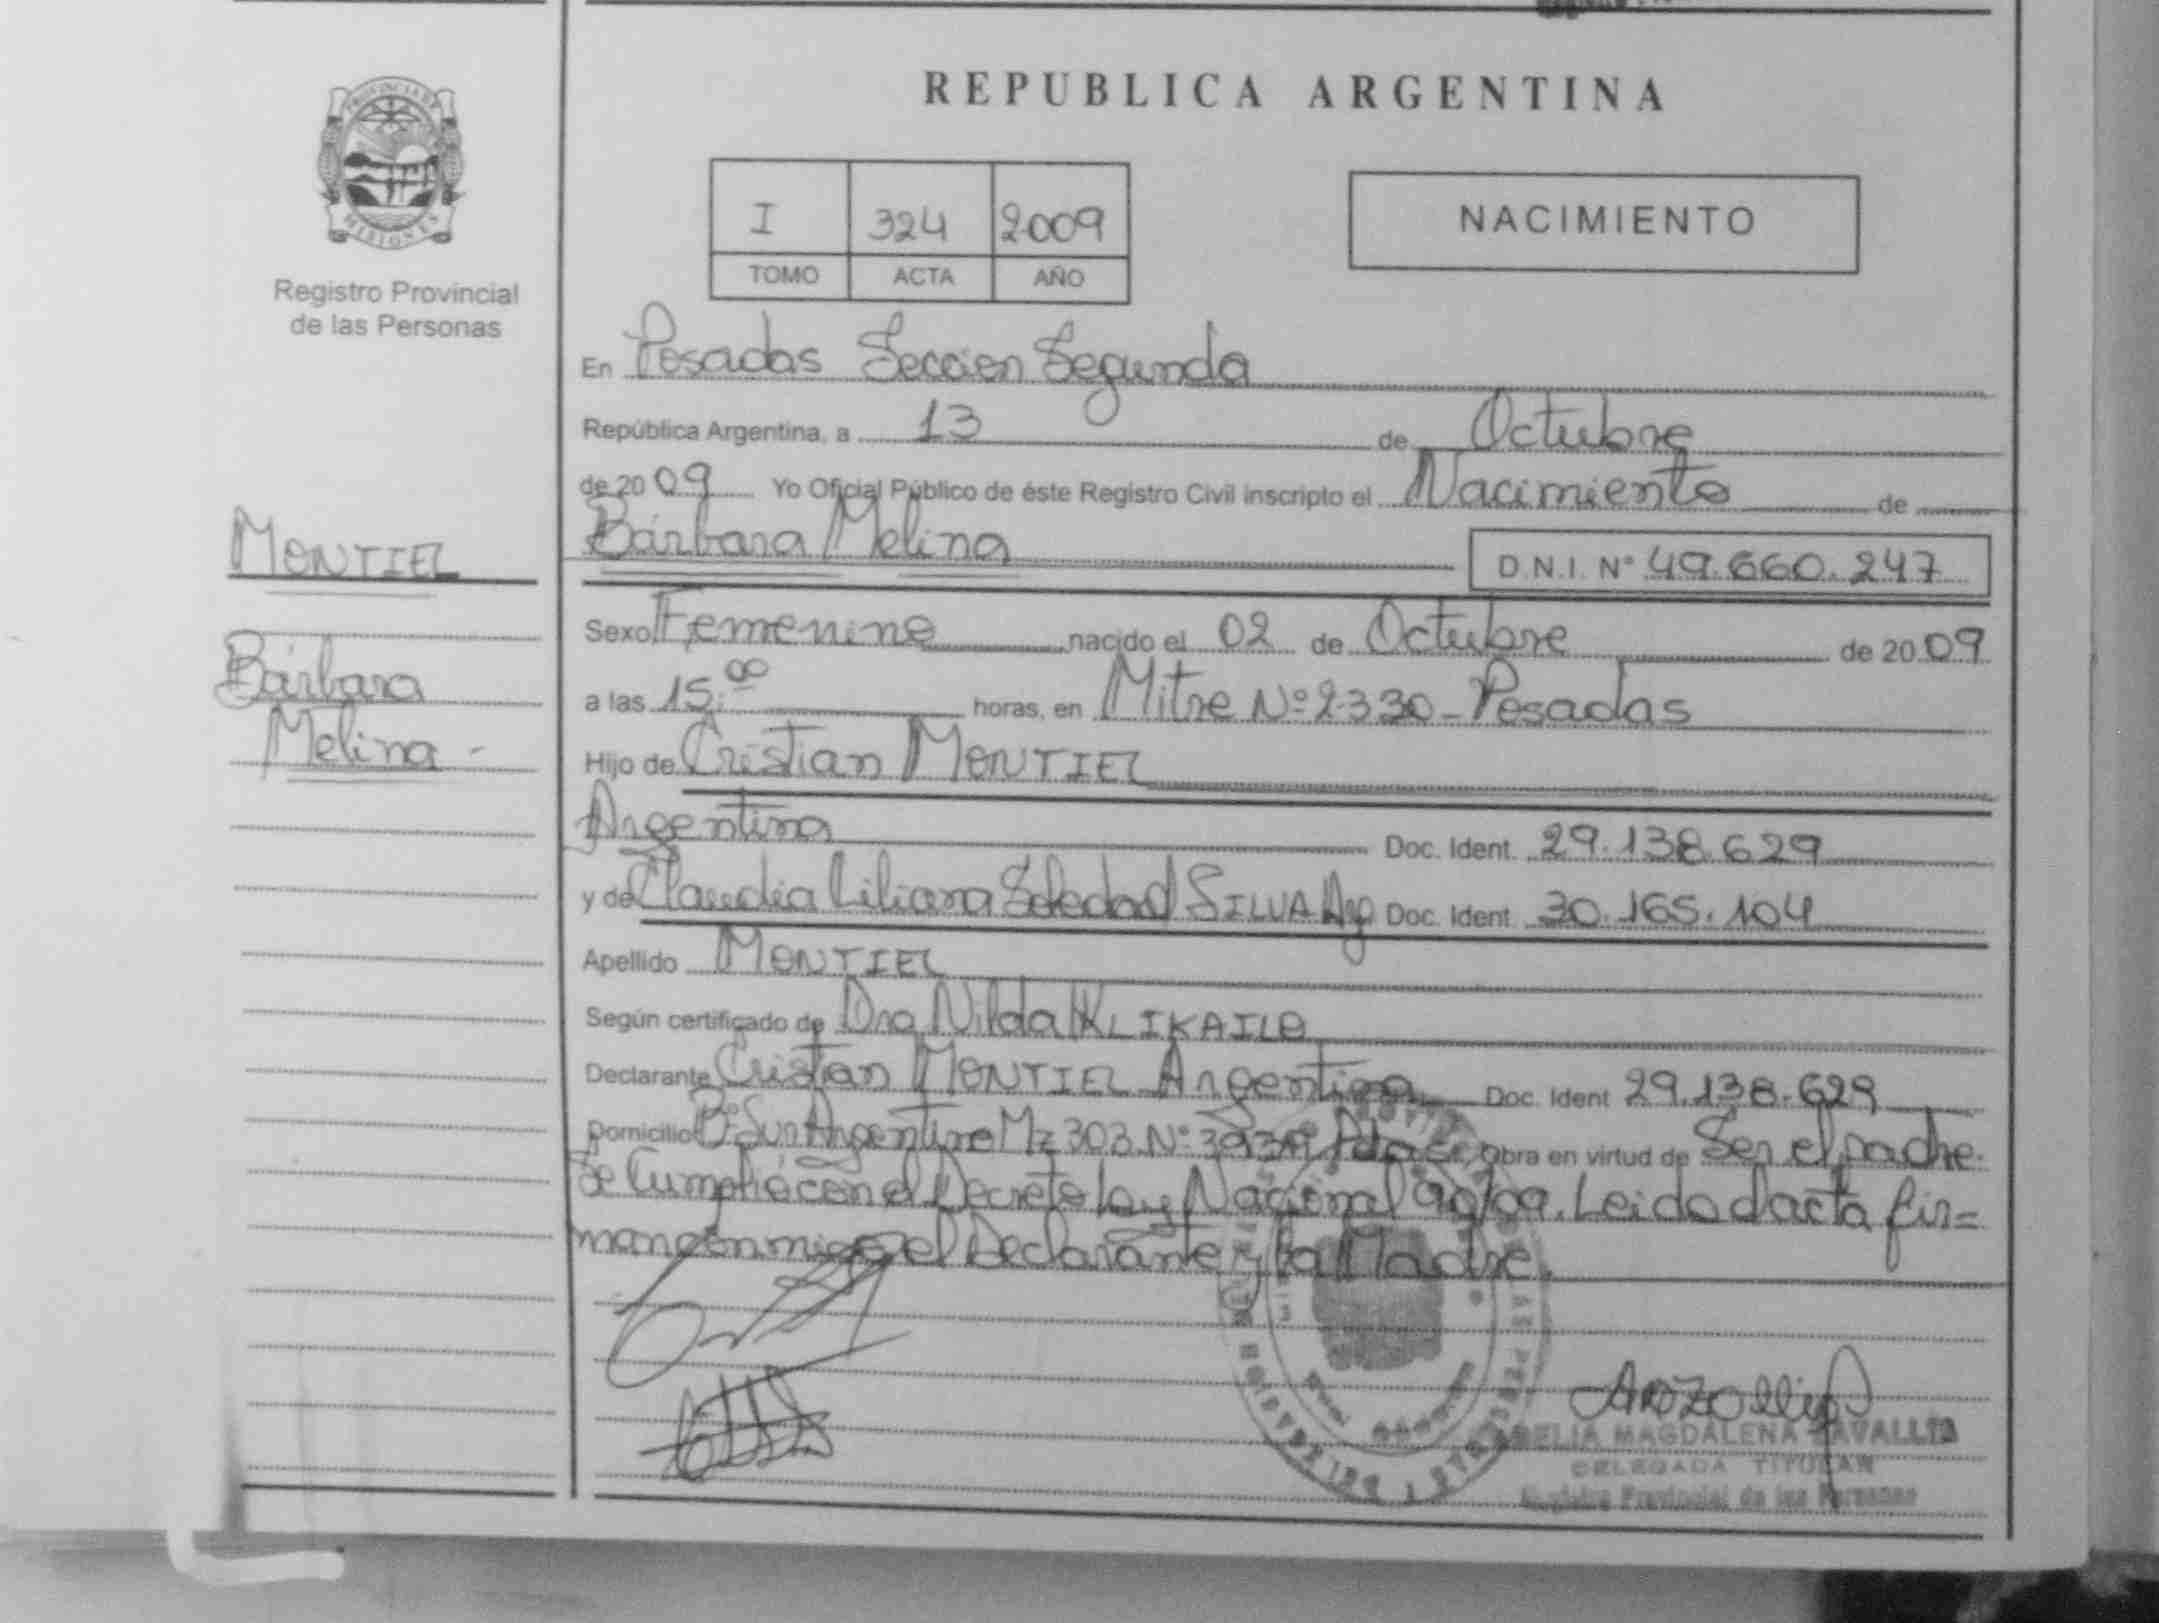 REPUBLICA ARGENTINA
PROVINCIA DE
MISIONES
Registro Provincial
de las Personas
I 324 2009
TOMO ACTA AÑO
NACIMIENTO
En Posadas Seccion Segunda
República Argentina, a 13 de Octubre
de 2009 Yo Oficial Público de éste Registro Civil inscripto el Nacimiento de
MONTIEL
Bárbara Melina D.N.I. Nº 49.660.247
Sexo Femenino nacido el 02 de Octubre de 2009
Bárbara
a las 15:00 horas, en Mitre Nº 2330 - Posadas
Melina -
Hijo de Cristian MONTIEL
Argentina Doc. Ident. 29.138.629
y de Claudia Liliana Soledad SILVA Arg Doc. Ident. 30.165.104
Apellido MONTIEL
Según certificado de Dra Nilda KLIKAILO
Declarante Cristian MONTIEL Argentina Doc. Ident 29.138.629
Domicilio Bº Sur Argentino Mz 303 Nº 3939 Pdas obra en virtud de Ser el padre.
Se Cumplió con el Decreto Ley Nacional 90/09. Leida el acta fir=
man conmigo el Declarante y la Madre.
MAGDALENA ZAVALLIO
DELEGADA TITULAR
Registro Provincial de las Personas